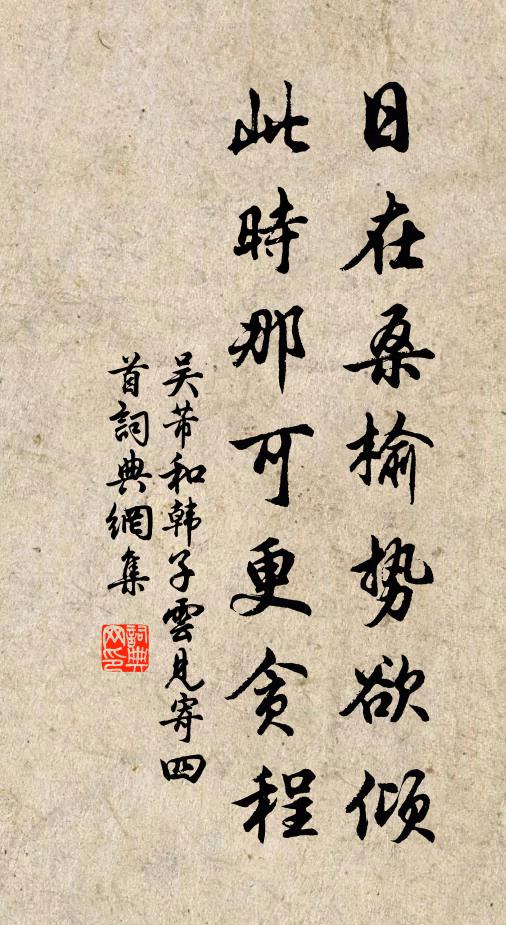 日在桑榆势欲倾
此時那可更贪程
吴芾和韩子雲見寄四
首詞典網集
詞典
网印